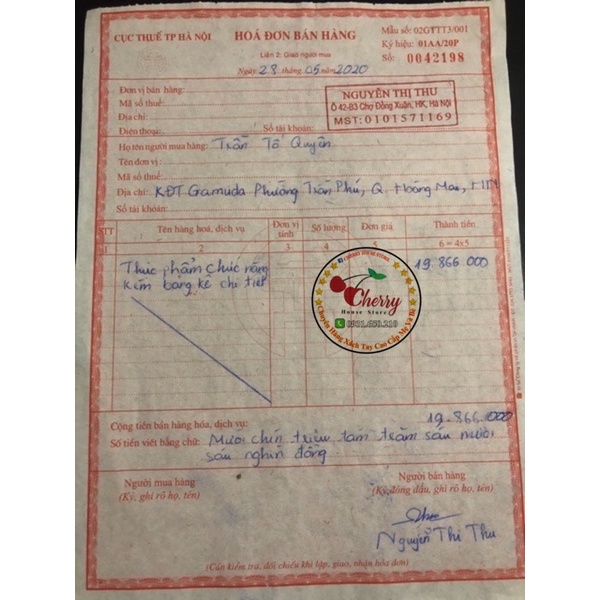 CỤC THUẾ TP HÀ NỘI
HOÁ ĐƠN BÁN HÀNG
Liên 2: Giao người mua
Ngày 28 tháng 05 năm 2020
Mẫu số: 02GTTT3/001
Ký hiệu: 01AA/20P
Số: 0042198
Đơn vị bán hàng:
Mã số thuế:
Địa chỉ:
Điện thoại: Số tài khoản:
NGUYỄN THỊ THU
Ô 42-B3 Chợ Đồng Xuân, HK, Hà Nội
MST: 0101571169
Họ tên người mua hàng: Trần Tố Quyên
Tên đơn vị:
Mã số thuế:
Địa chỉ: KĐT Gamuda Phường Trần Phú, Q. Hoàng Mai, HN
Số tài khoản:
STT Tên hàng hoá, dịch vụ Đơn vị tính Số lượng Đơn giá Thành tiền
1 2 3 4 5 6 = 4x5
Thực phẩm chức năng 19.866 000
kèm bảng kê chi tiết
CHERRY HOUSE STORE
Cherry
House Store
0931.658.218
Chuyên Hàng Xách Tay Cao Cấp Mẹ Và Bé
Cộng tiền bán hàng hóa, dịch vụ: 19.866.000
Số tiền viết bằng chữ: Mười chín triệu tám trăm sáu mươi
sáu nghìn đồng
Người mua hàng
(Ký, ghi rõ họ, tên)
Người bán hàng
(Ký, đóng dấu, ghi rõ họ, tên)
Nguyễn Thị Thu
(Cần kiểm tra, đối chiếu khi lập, giao, nhận hóa đơn)